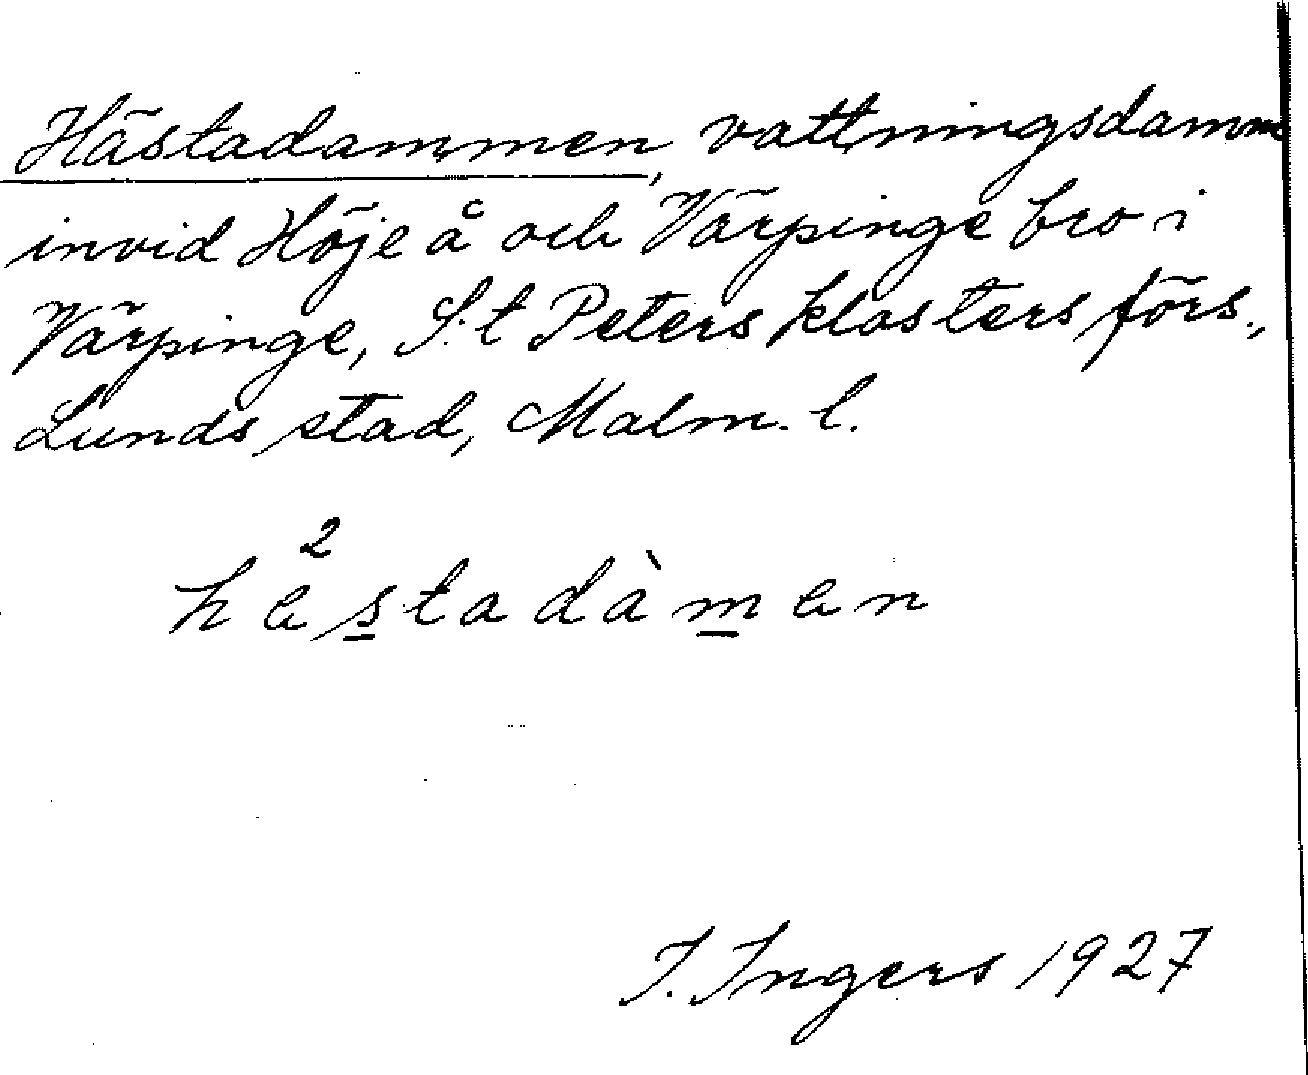 Hästadammen, vattningsdamm
invid Höje å och Värpinge bro i
Värpinge, S:t Peters klosters förs.,
Lunds stad, Malm. l.
2
hästadàmen
I. Ingers 1927